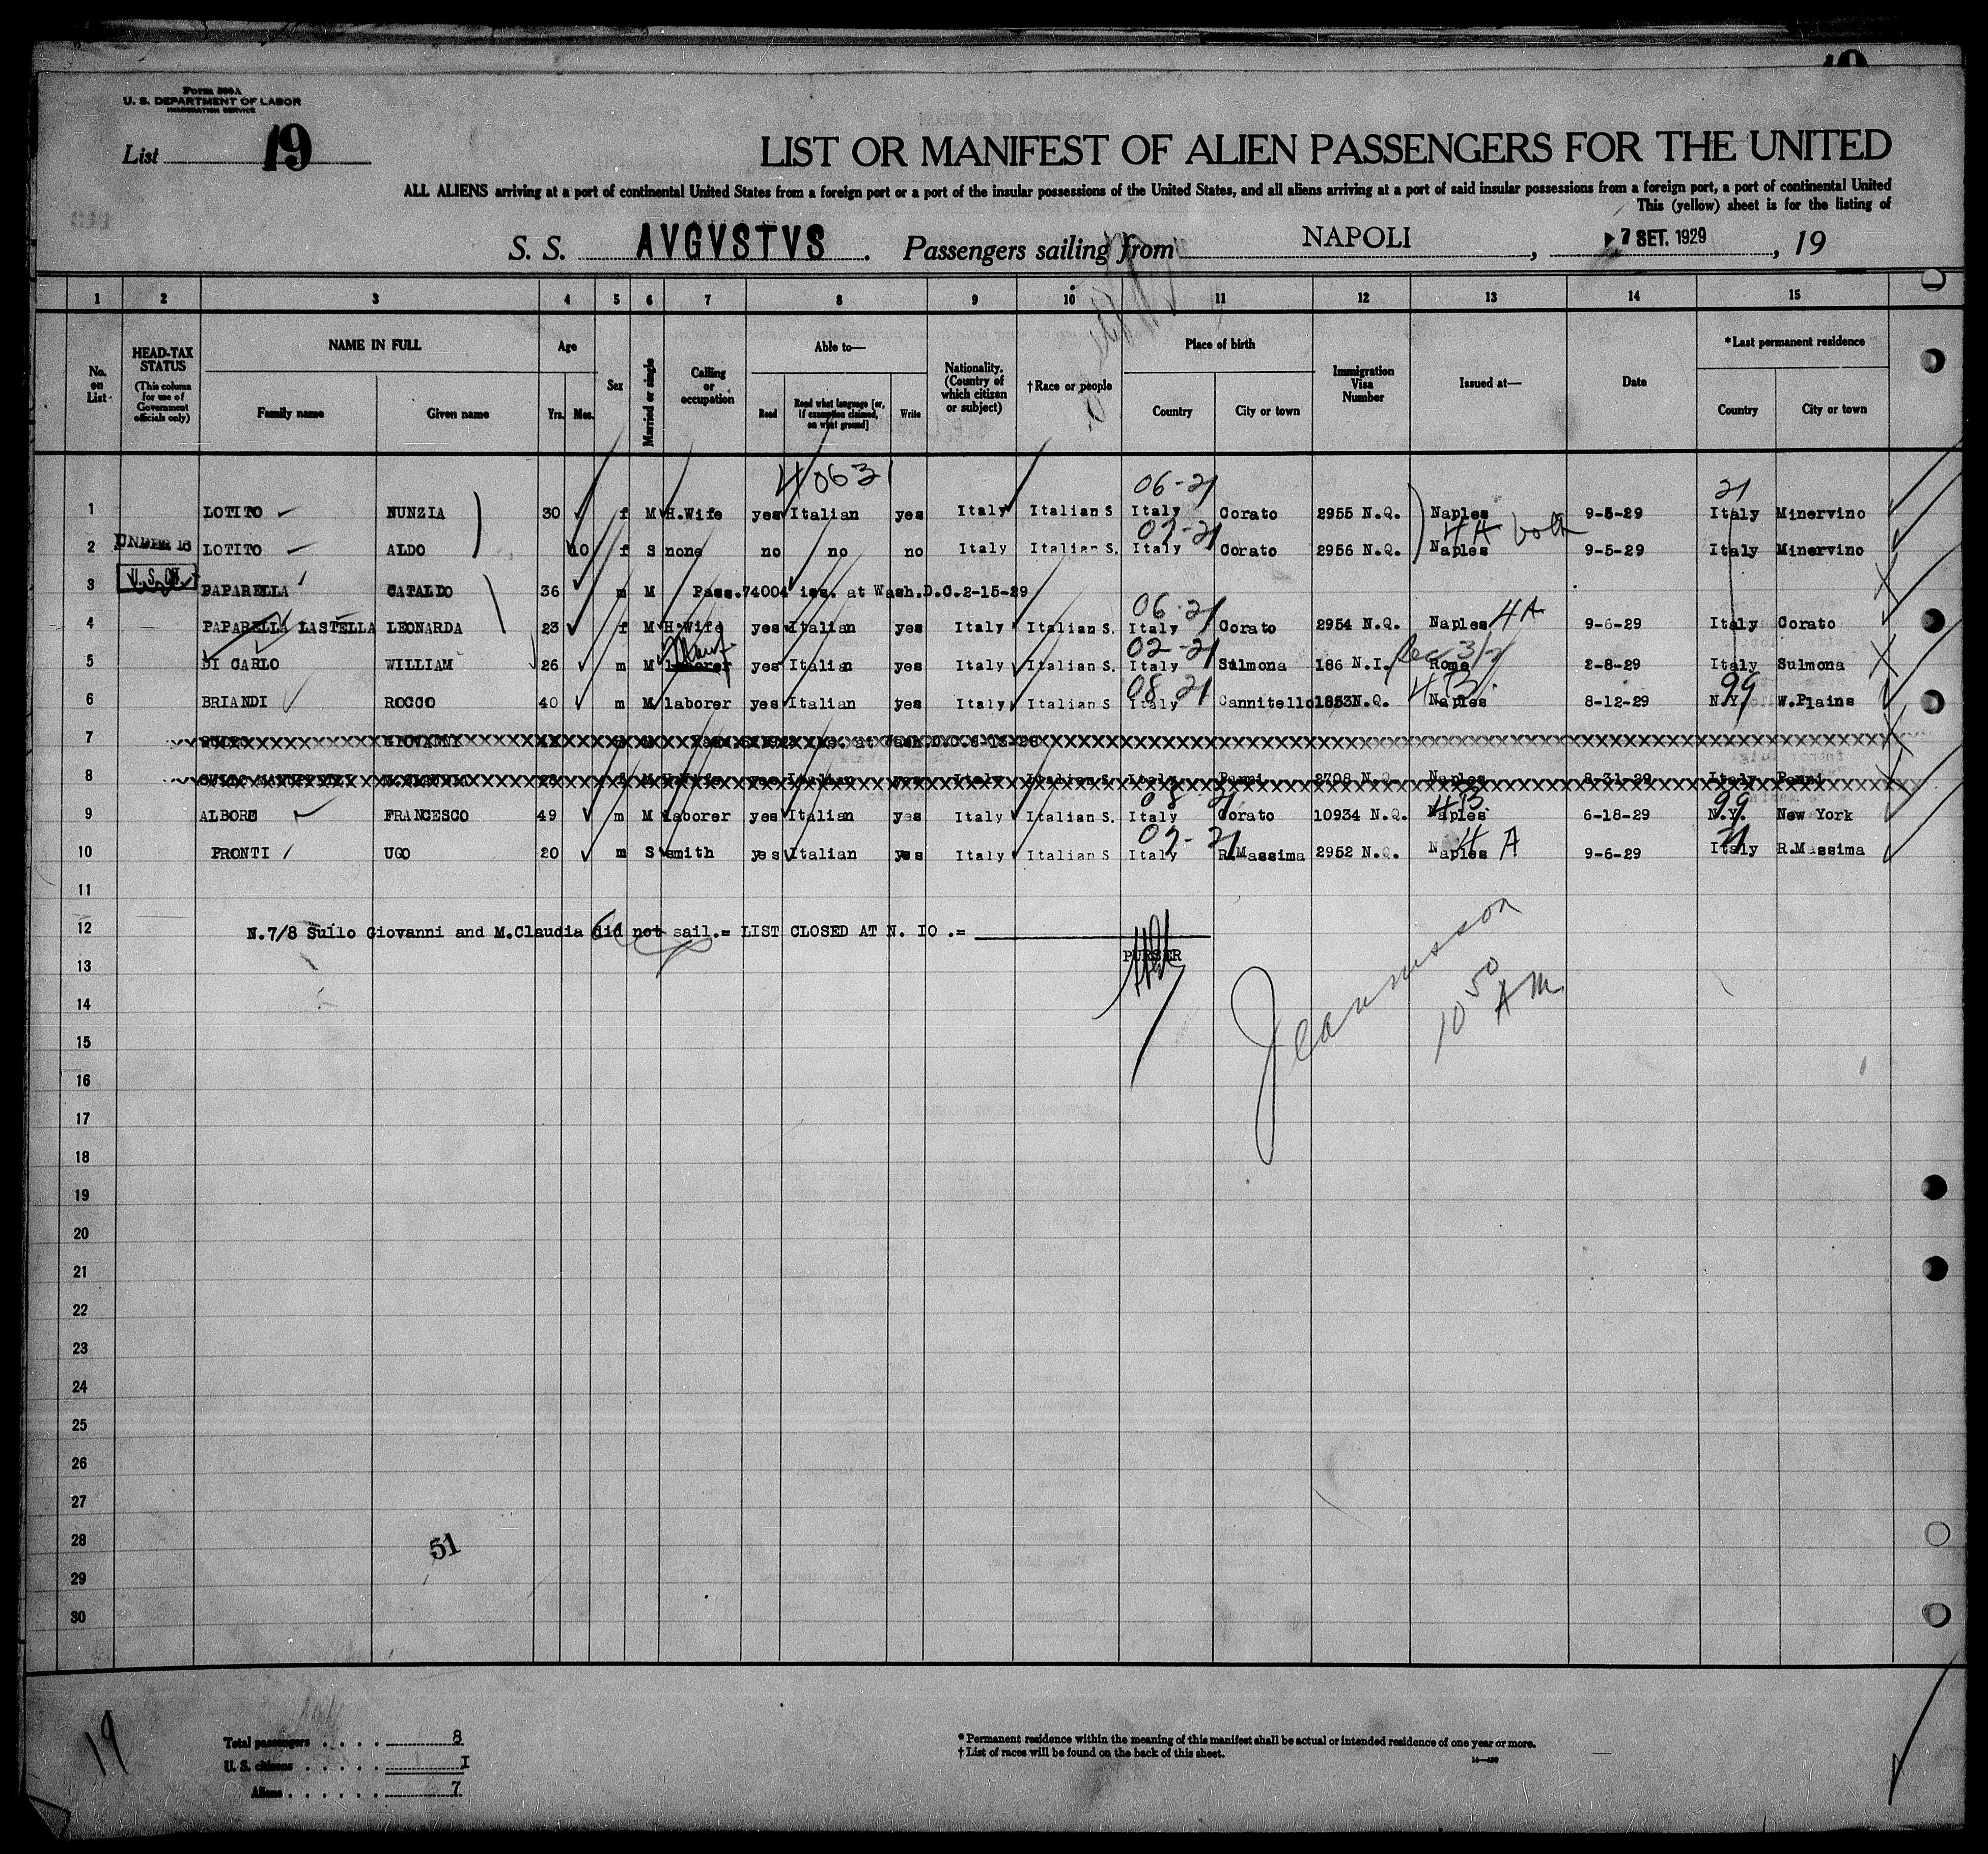 Form 500A
U. S. DEPARTMENT OF LABOR
IMMIGRATION SERVICE
List 19
LIST OR MANIFEST OF ALIEN PASSENGERS FOR THE UNITED
ALL ALIENS arriving at a port of continental United States from a foreign port or a port of the insular possessions of the United States, and all aliens arriving at a port of said insular possessions from a foreign port, a port of continental United
This (yellow) sheet is for the listing of
S. S. AVGVSTVS . Passengers sailing from NAPOLI , 7 SET. 1929 , 19
1 2 3 4 5 6 7 8 9 10 11 12 13 14 15
No. on List
HEAD-TAX STATUS (This column for use of Government officials only)
NAME IN FULL Family name Given name
Age Yrs. Mos.
Sex
Married or single
Calling or occupation
Able to— Read Read what language [or, if exemption claimed, on what ground] Write
Nationality. (Country of which citizen or subject)
†Race or people
Place of birth Country City or town
Immigration Visa Number
Issued at—
Date
*Last permanent residence Country City or town
4063 06-21 21
1 LOTITO NUNZIA 30 f M H.Wife yes Italian yes Italy Italian S Italy Corato 2955 N.Q. Naples 9-5-29 Italy Minervino
07-21 4A both
2 UNDER 16 LOTITO ALDO 10 f S none no no no Italy Italian S. Italy Corato 2956 N.Q. Naples 9-5-29 Italy Minervino
3 U.S. CIT. PAPARELLA CATALDO 36 m M Pass.74004 iss. at Wash.D.C.2-15-29
06-21
4 PAPARELLA LASTELLA LEONARDA 23 f M H.Wife yes Italian yes Italy Italian S. Italy Corato 2954 N.Q. Naples 4A 9-6-29 Italy Corato
02-21
5 DI CARLO WILLIAM 26 m M laborer yes Italian yes Italy Italian S. Italy Sulmona 186 N.I. Rome 2-8-29 Italy Sulmona
08 21 4B 99
6 BRIANDI ROCCO 40 m M laborer yes Italian yes Italy Italian S Italy Cannitello 1853 N.Q. Naples 8-12-29 N.Y. W.Plains
7 GIOVANNI iss. at Wash.D.C.
8 M.CLAUDIA M H.Wife yes Italian yes Italy Italian S Italy Panni 2708 N.Q. Naples 8-31-29 Italy Panni
08 21 4B 99
9 ALBORE FRANCESCO 49 m M laborer yes Italian yes Italy Italian S. Italy Corato 10934 N.Q. Naples 6-18-29 N.Y. New York
07-21 4 A 21
10 PRONTI UGO 20 m S smith yes Italian yes Italy Italian S Italy R.Massima 2952 N.Q. Naples 9-6-29 Italy R.Massima
11
12 N.7/8 Suilo Giovanni and M.Claudia did not sail.= LIST CLOSED AT N. IO .=
PURSER
13
14
10 50 AM
15
16
17
18
19
20
21
22
23
24
25
26
27
28
51
29
30
19
Total passengers . . . . 8
U. S. citizens . . . . . I
Aliens . . . . . . 7
* Permanent residence within the meaning of this manifest shall be actual or intended residence of one year or more.
† List of races will be found on the back of this sheet.